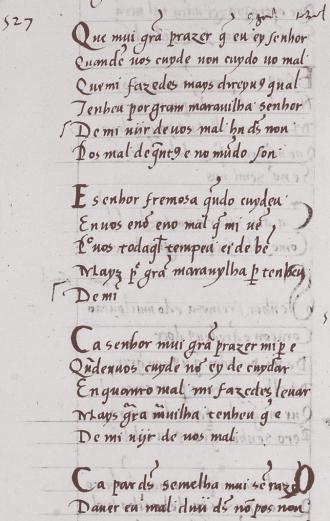 527
Que mui grã prazer q̃ eu ey senhor
Quande vos cuyde non cuydo no mal
Que mi fazedes mays direyvꝯ qual
Tenheu por gram maravilha senhor
De mi uijr de vos mal hu d̃s non
Pos mal de q̃ntꝯ e no mũdo son
E senhor fremosa q̃ndo cuydeu
En vos e no mal q̃ mi vẽ
vos todaq̃l tempeu ei de bẽ
Mays grã maravylha tenheu
De mi
Ca senhor mui grã prazer mi e
Qñdenvos cuyde nõ ey de cuydar
En quanto mal mi fazedes levar
Mays grã m̃uilha tenheu q̃ e
De mi uijr de vos mal
Ca par d̃s semelha mui sẽ razõ
Daver eu mal d̃s nõ pos non